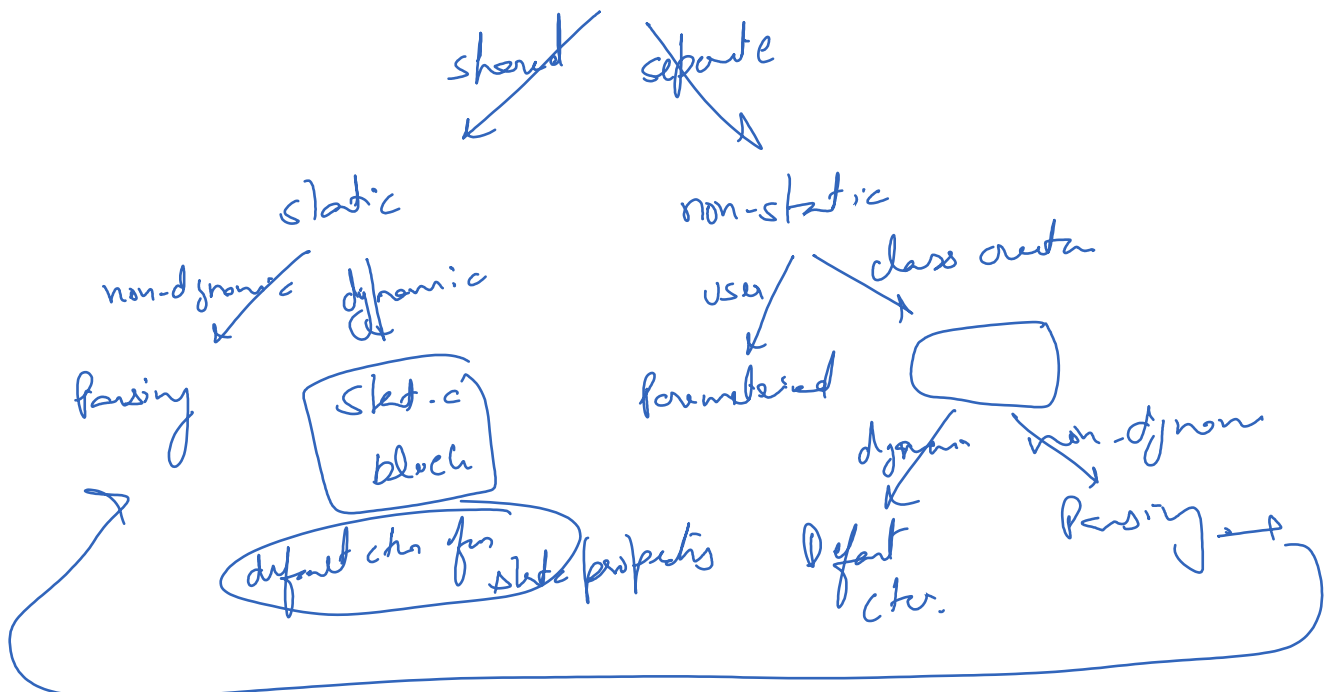 shared separate
static non-static
non-dynamic dynamic user class creator
Parsing static block Parameterised
dynamic non-dynam
default ctor for static properties Default ctor. Parsing